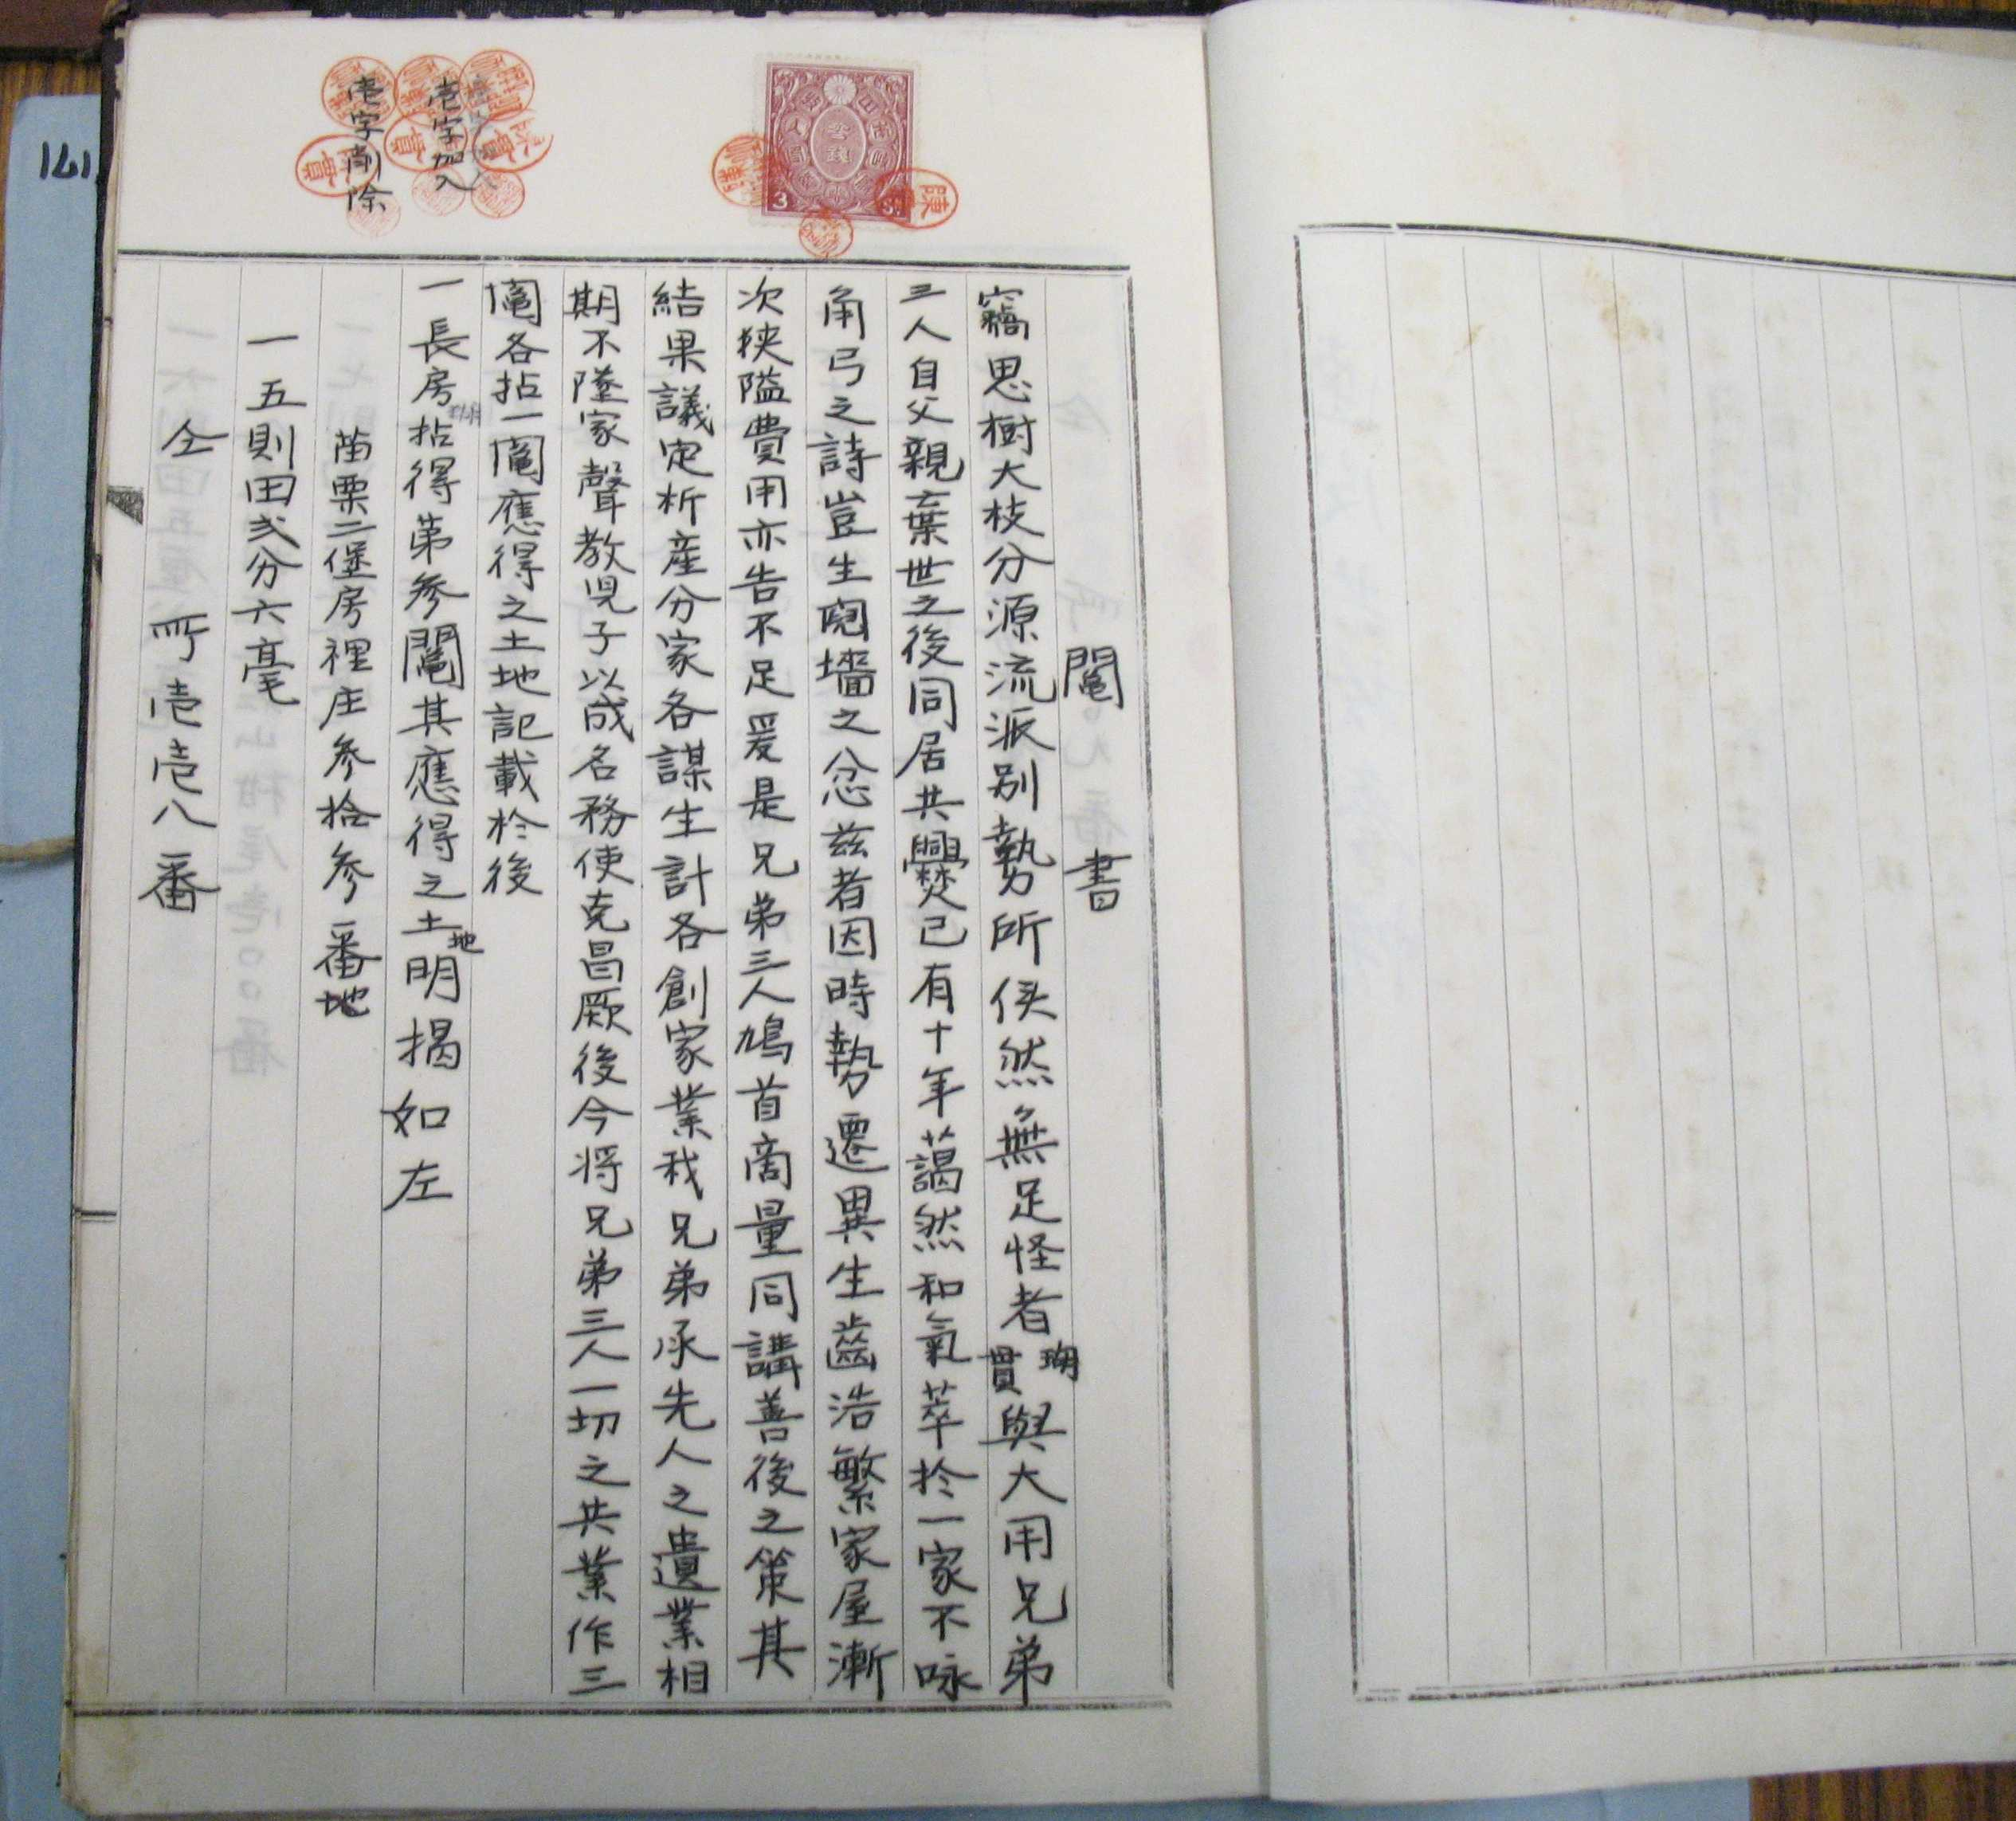 鬮書
竊思樹大枝分源流派別勢所俟然無足怪者瑚貫與大用兄弟
三人自父親棄世之後同居共爨已有十年藹然和氣萃於一家不咏
角弓之詩豈生鬩墻之忿茲者因時勢遷異生齒浩繁家屋漸
次狹隘費用亦告不足爰是兄弟三人鳩首商量同講善後之策其
結果議定析產分家各謀生計各創家業我兄弟承先人之遺業相
期不墜家聲教児子以成名務使克昌厥後今将兄弟三人一切之共業作三
鬮各拈一鬮應得之土地記載於後
一長房拈得第參鬮其應得之土地明揭如左
苗栗二堡房裡庄參拾參番地
一五則田弍分六毫
仝 所壱壱八番
壱字加入
壱字削除
3
161